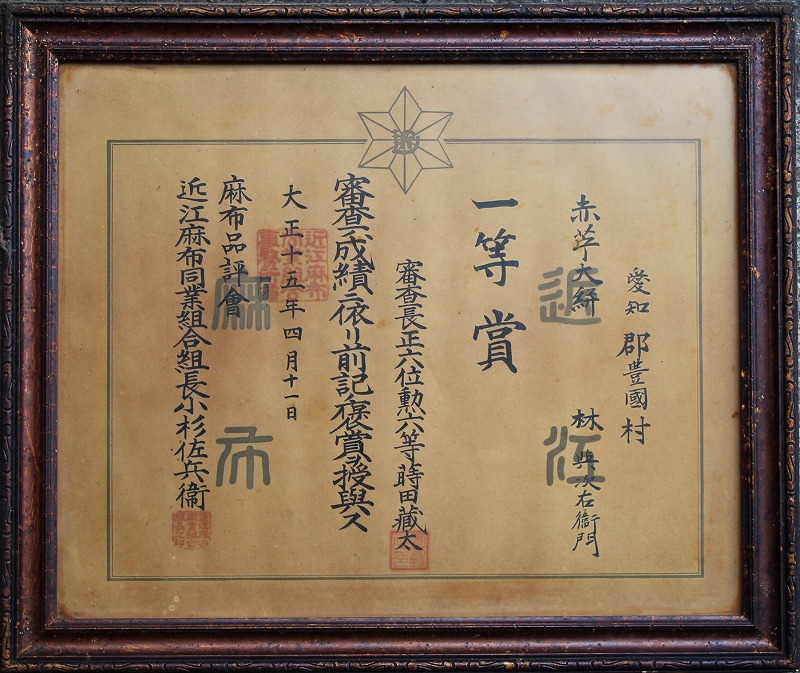 愛知郡豊國村
赤苧大絣　林與次右衞門
近江
一等賞
審査長正六位勲六等蒔田藏太
審査ノ成績ニ依リ前記ノ褒賞ヲ授與ス
大正十五年四月十一日
麻布
麻布品評會
近江麻布同業組合組長小杉佐兵衞